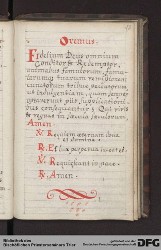 Oremus.
Fidelium Deus omnium
Conditor & Redemptor,
animabus famulorum, famu-
larumque tuarum remissionem
cunctorum tribue peccatorum,
ut indulgentiam, quam semper
optaverunt, piis supplicationi-
bus consequantur. Qui vivis
& regnas in sæcula sæculorum.
Amen.
V. Requiem æternam dona
eis Domine.
R. Et lux perpetua luceat eis.
V. Requiescant in pace.
R. Amen.
Bibliothek des
Bischöflichen Priesterseminars Trier
Gefördert durch die
Deutsche Forschungsgemeinschaft